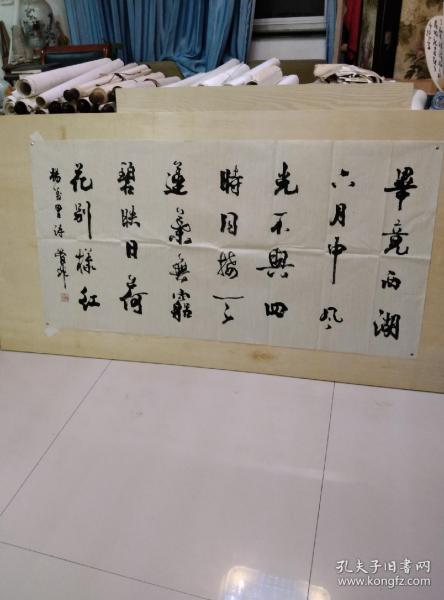 畢竟西湖
六月中風
光不與四
時同接天
蓮葉無窮
碧映日荷
花别樣红
楊萬里詩
孔夫子旧书网
www.kongfz.com